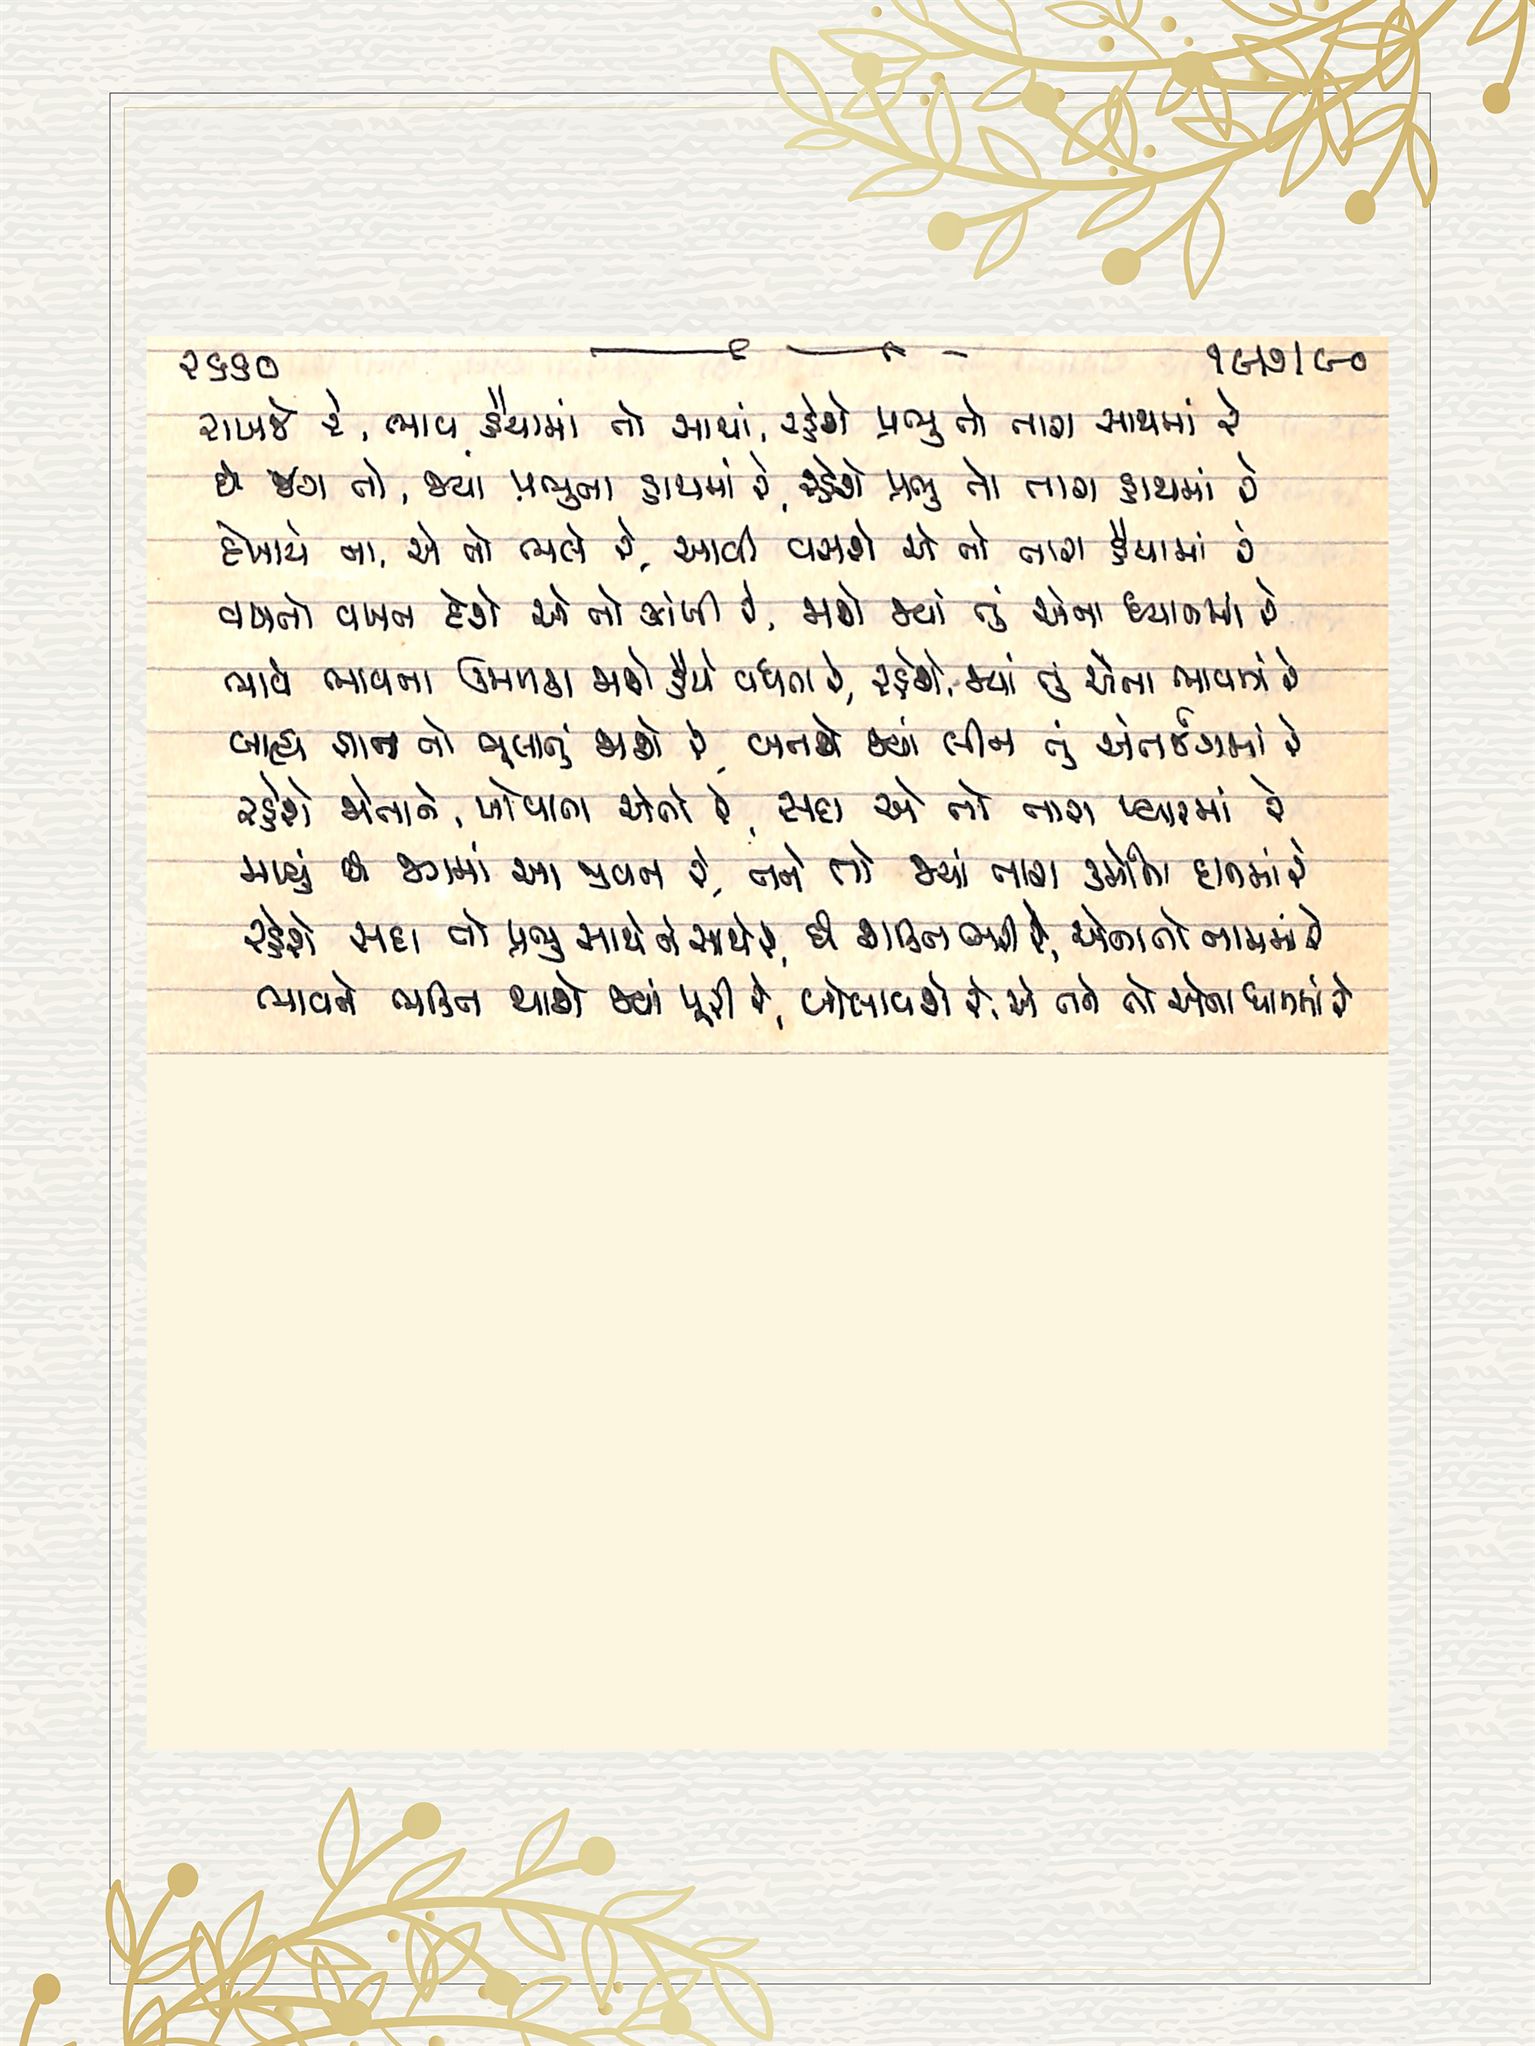 ૨૬૬૦ ૧૯/૭/૯૦
રાખજે રે, ભાવ હૈયામાં તો સાચાં, રહેશે પ્રભુ તો તારા સાથમાં રે
છે જગ તો, જ્યાં પ્રભુના હાથમાં રે, રહેશે પ્રભુ તો તારા હાથમાં રે
દેખાયે ના, એ તો ભલે રે, આવી વસશે એ તો તારા હૈયામાં રે
વખતો વખત દેશે એ તો ઝાંખી રે, જાશે જ્યાં તું એના ધ્યાનમાં રે
ભાવે ભાવના ઉમળકા જાશે હૈયે વધતા રે, રહેશે, જ્યાં તું એના ભાવમાં રે
બાહ્ય જ્ઞાન તો ભૂલાતું જાશે રે, બનશે જ્યાં લીન તું એનાજ રંગમાં રે
રહેશે જોતાને, ખોવાતા એતો રે, સદા એ તો તારા પ્યારમાં રે
માણ્યું છે જગમાં આ જીવન રે, તને તો જ્યાં તારા કર્મોના દાનમાં રે
રહેશે સદા તો પ્રભુ સાથે ને સાથે રે, છે શક્તિ ભરી રે, એના તો નામમાં રે
ભાવને ભક્તિ થાશે જ્યાં પૂરી રે, બોલાવશે રે, એ તને તો એના ધામમાં રે